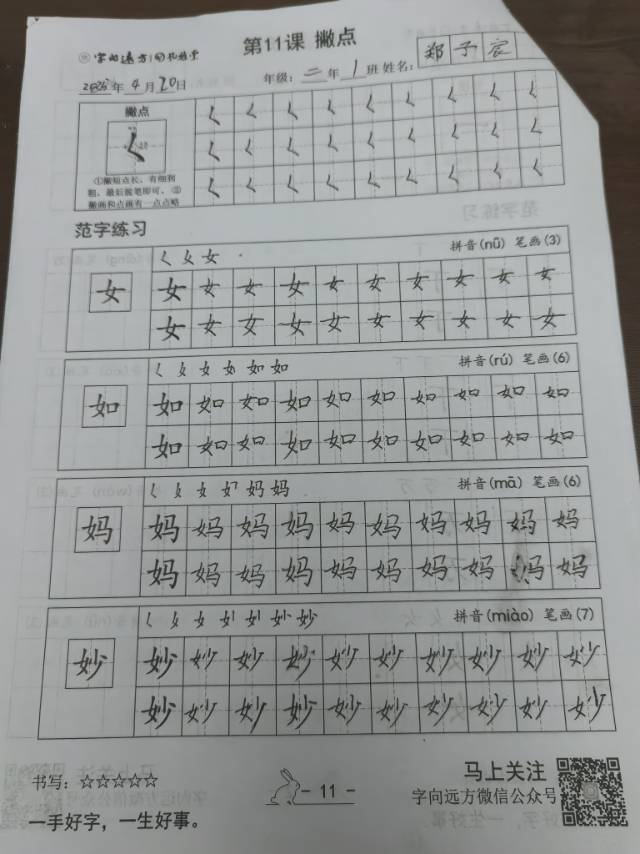 第11课 撇点
字向远方
2025年4月20日 年级:二年1班 姓名:郑予宸
撇点
①撇短点长、有细到
粗、最后能笔即可、②
撇画和点画有一点点略
范字练习
女 拼音(nǚ) 笔画(3)
女 女 女 女 女 女 女 女 女 女
女 女 女 女 女 女 女 女 女 女
如 拼音(rú) 笔画(6)
如 如 如 如 如 如 如 如 如 如
如 如 如 如 如 如 如 如 如 如
妈 拼音(mā) 笔画(6)
妈 妈 妈 妈 妈 妈 妈 妈 妈 妈
妈 妈 妈 妈 妈 妈 妈 妈 妈 妈
妙 拼音(miào) 笔画(7)
妙 妙 妙 妙 妙 妙 妙 妙 妙 妙
妙 妙 妙 妙 妙 妙 妙 妙 妙 妙
书写:☆☆☆☆☆
一手好字,一生好事。
- 11 -
马上关注
字向远方微信公众号